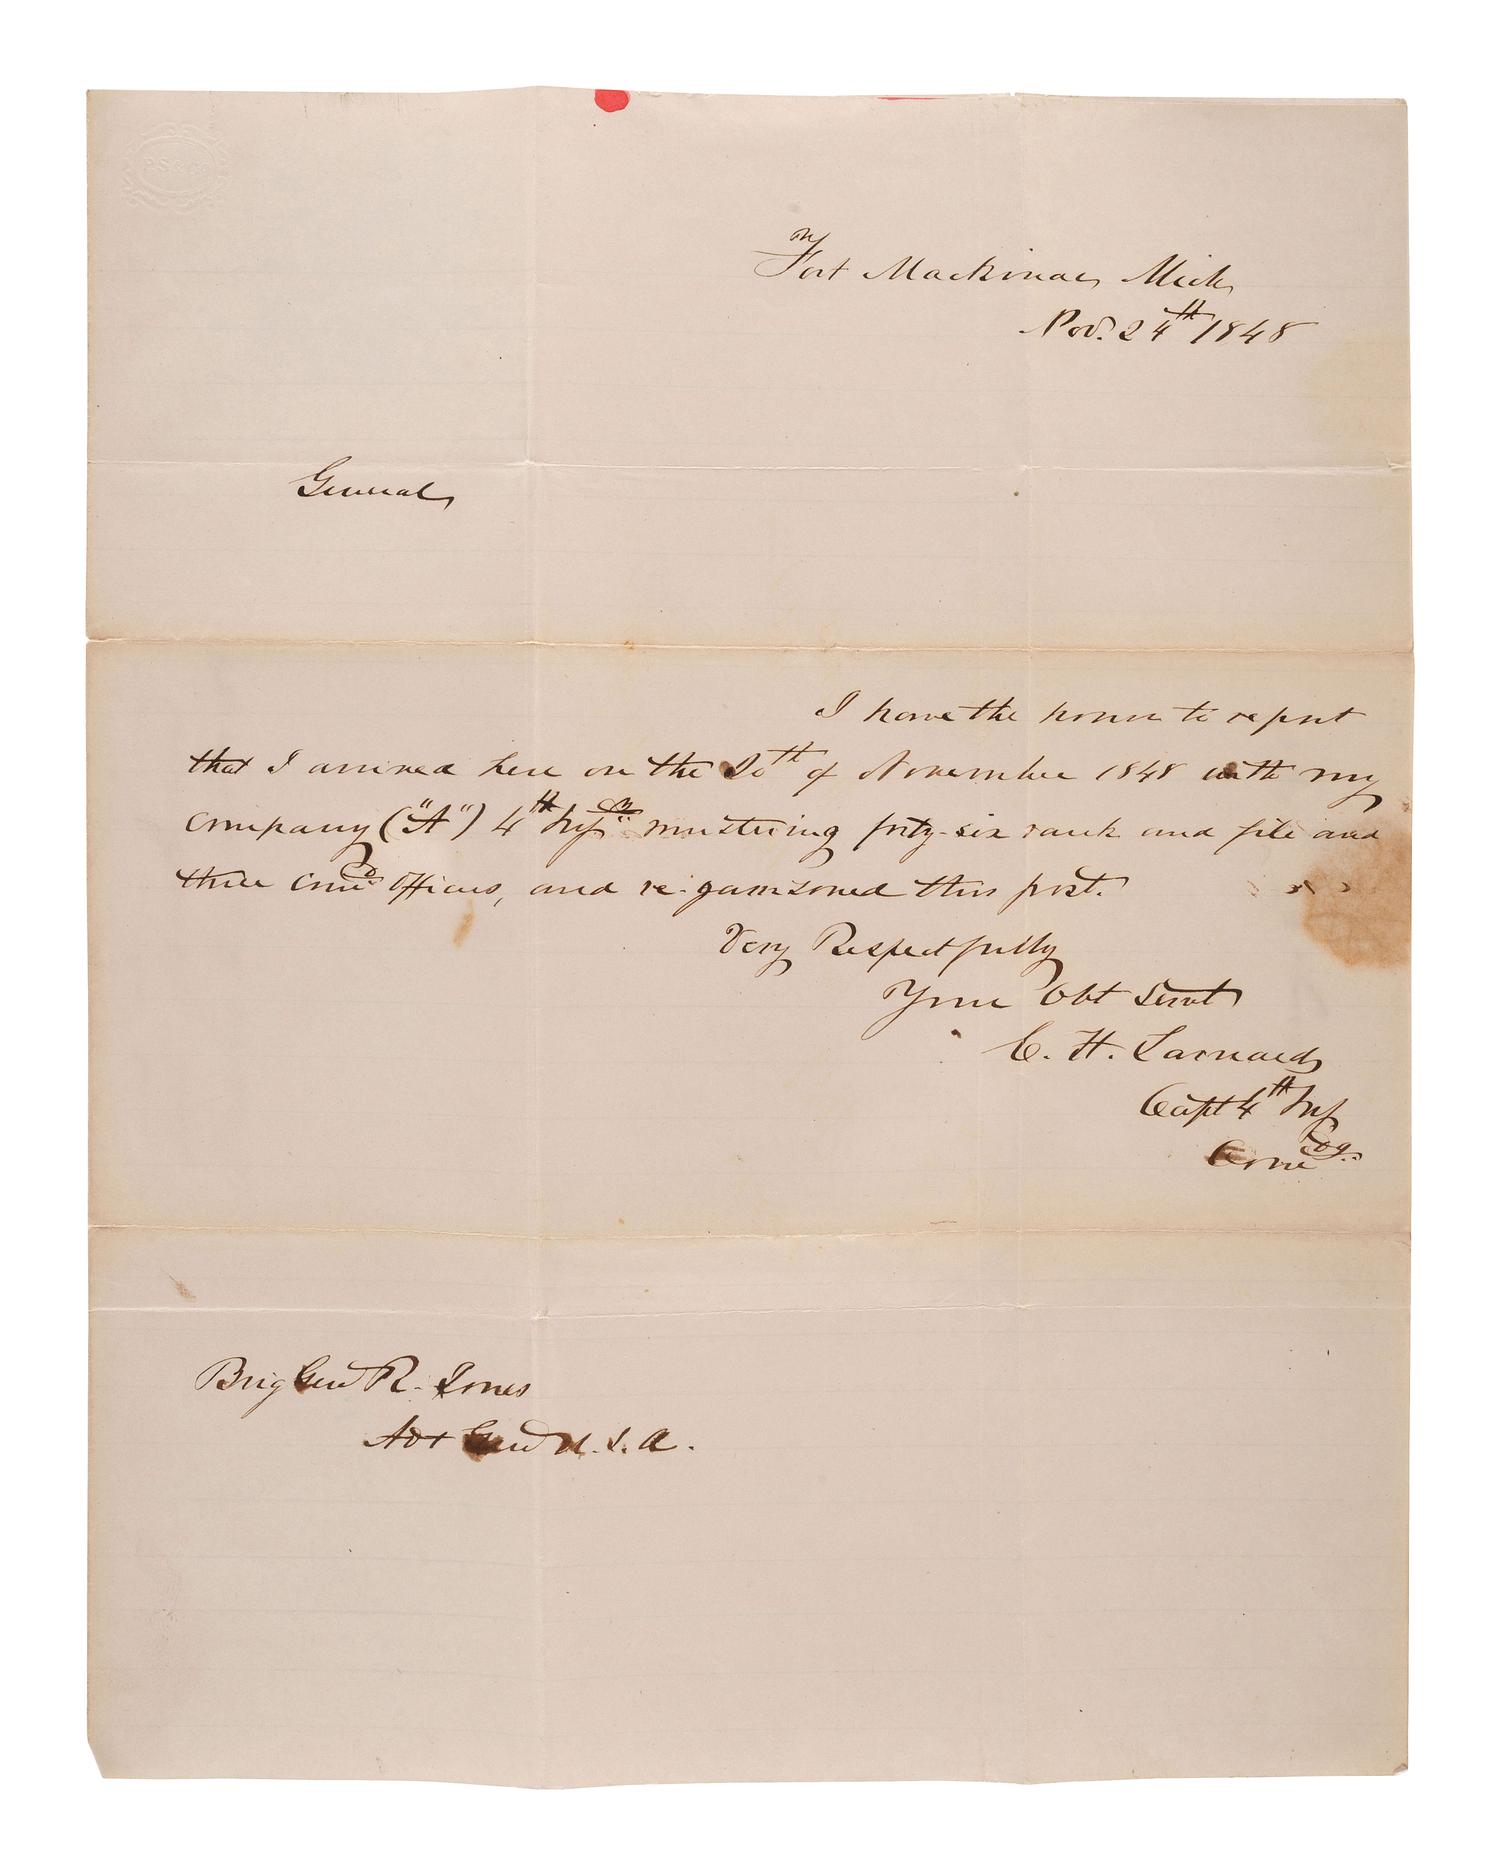 P S & Co
Fort Mackinac, Mich,
Nov. 24th 1848
General,
I have the honor to report
that I arrived here on the 20th of November 1848 with my
company ("A") 4th Infy mustering forty-six rank and file and
three Comd Officers, and re-garrisoned this post.
Very Respectfully
Your Obt Servt
C. H. Larnard,
Capt 4th Inf
Comdg.
Brig Genl R. Jones
Adt Genl U.S.A.